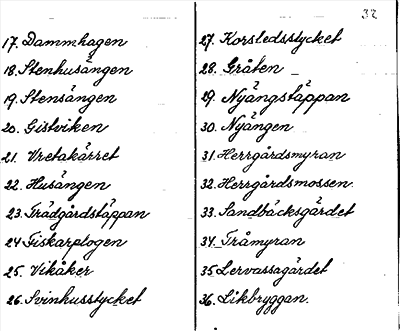 32
17. Dammhagen
18. Stenhusängen
19. Stensängen
20. Gistviken
21. Vretakärret
22. Husängen
23. Trädgårdstäppan
24 Fiskarplogen
25. Vikåker
26. Svinhusstycket
27. Korsledsstycket
28. Gråten
29. Nyängstäppan
30. Nyängen
31. Herrgårdsmyran
32. Herrgårdsmossen.
33. Sandbäcksgärdet
34. Tråmyran
35 Lervassagärdet
36. Likbryggan.